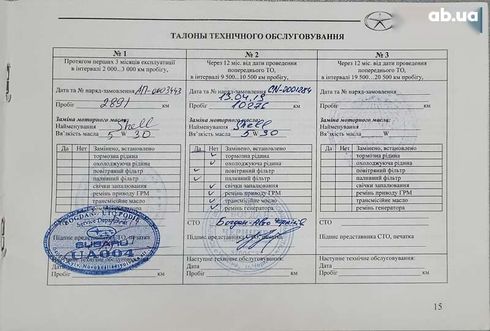 ab.ua
ТАЛОНЫ ТЕХНІЧНОГО ОБСЛУГОВУВАННЯ
№ 1
Протягом перших 3 місяців експлуатації
в інтервалі 2 000...3 000 км пробігу,
Дата та № наряд-замовлення АП-0003443
Пробіг 2891 км
Заміна моторного масла:
Найменування Shell
В'язкість масла 5 W 30
Да Нет Замінено, встановлено
тормозна рідина
охолоджуюча рідина
повітряний фільтр
паливний фільтр
свічки запалювання
ремінь приводу ГРМ
трансмісійне масло
ремінь генератора
СТО
Підпис представника СТО, печатка
Service Department
SUBARU
UA004
Наступне технічне обслуговування:
Дата
Пробіг км
№ 2
Через 12 міс. від дати проведення
попереднього ТО,
в інтервалі 9 500...10 500 км пробігу,
Дата та № наряд-замовлення
13.04
Пробіг км
Заміна моторного масла:
Найменування Shell
В'язкість масла 5 W 30
Да Нет Замінено, встановлено
тормозна рідина
охолоджуюча рідина
повітряний фільтр
паливний фільтр
свічки запалювання
ремінь приводу ГРМ
трансмісійне масло
ремінь генератора
СТО
Підпис представника СТО, печатка
Наступне технічне обслуговування:
Дата
Пробіг км
№ 3
Через 12 міс. від дати проведення
попереднього ТО,
в інтервалі 19 500...20 500 км пробігу,
Дата та № наряд-замовлення
Пробіг км
Заміна моторного масла:
Найменування
В'язкість масла W
Да Нет Замінено, встановлено
тормозна рідина
охолоджуюча рідина
повітряний фільтр
паливний фільтр
свічки запалювання
ремінь приводу ГРМ
трансмісійне масло
ремінь генератора
СТО
Підпис представника СТО, печатка
Наступне технічне обслуговування:
Дата
Пробіг км
15